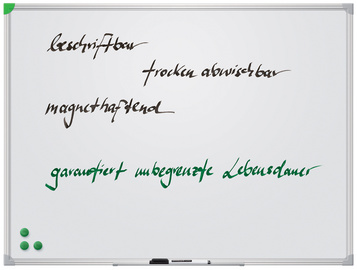 beschriftbar
trocken abwischbar
magnethaftend
garantiert unbegrenzte Lebensdauer